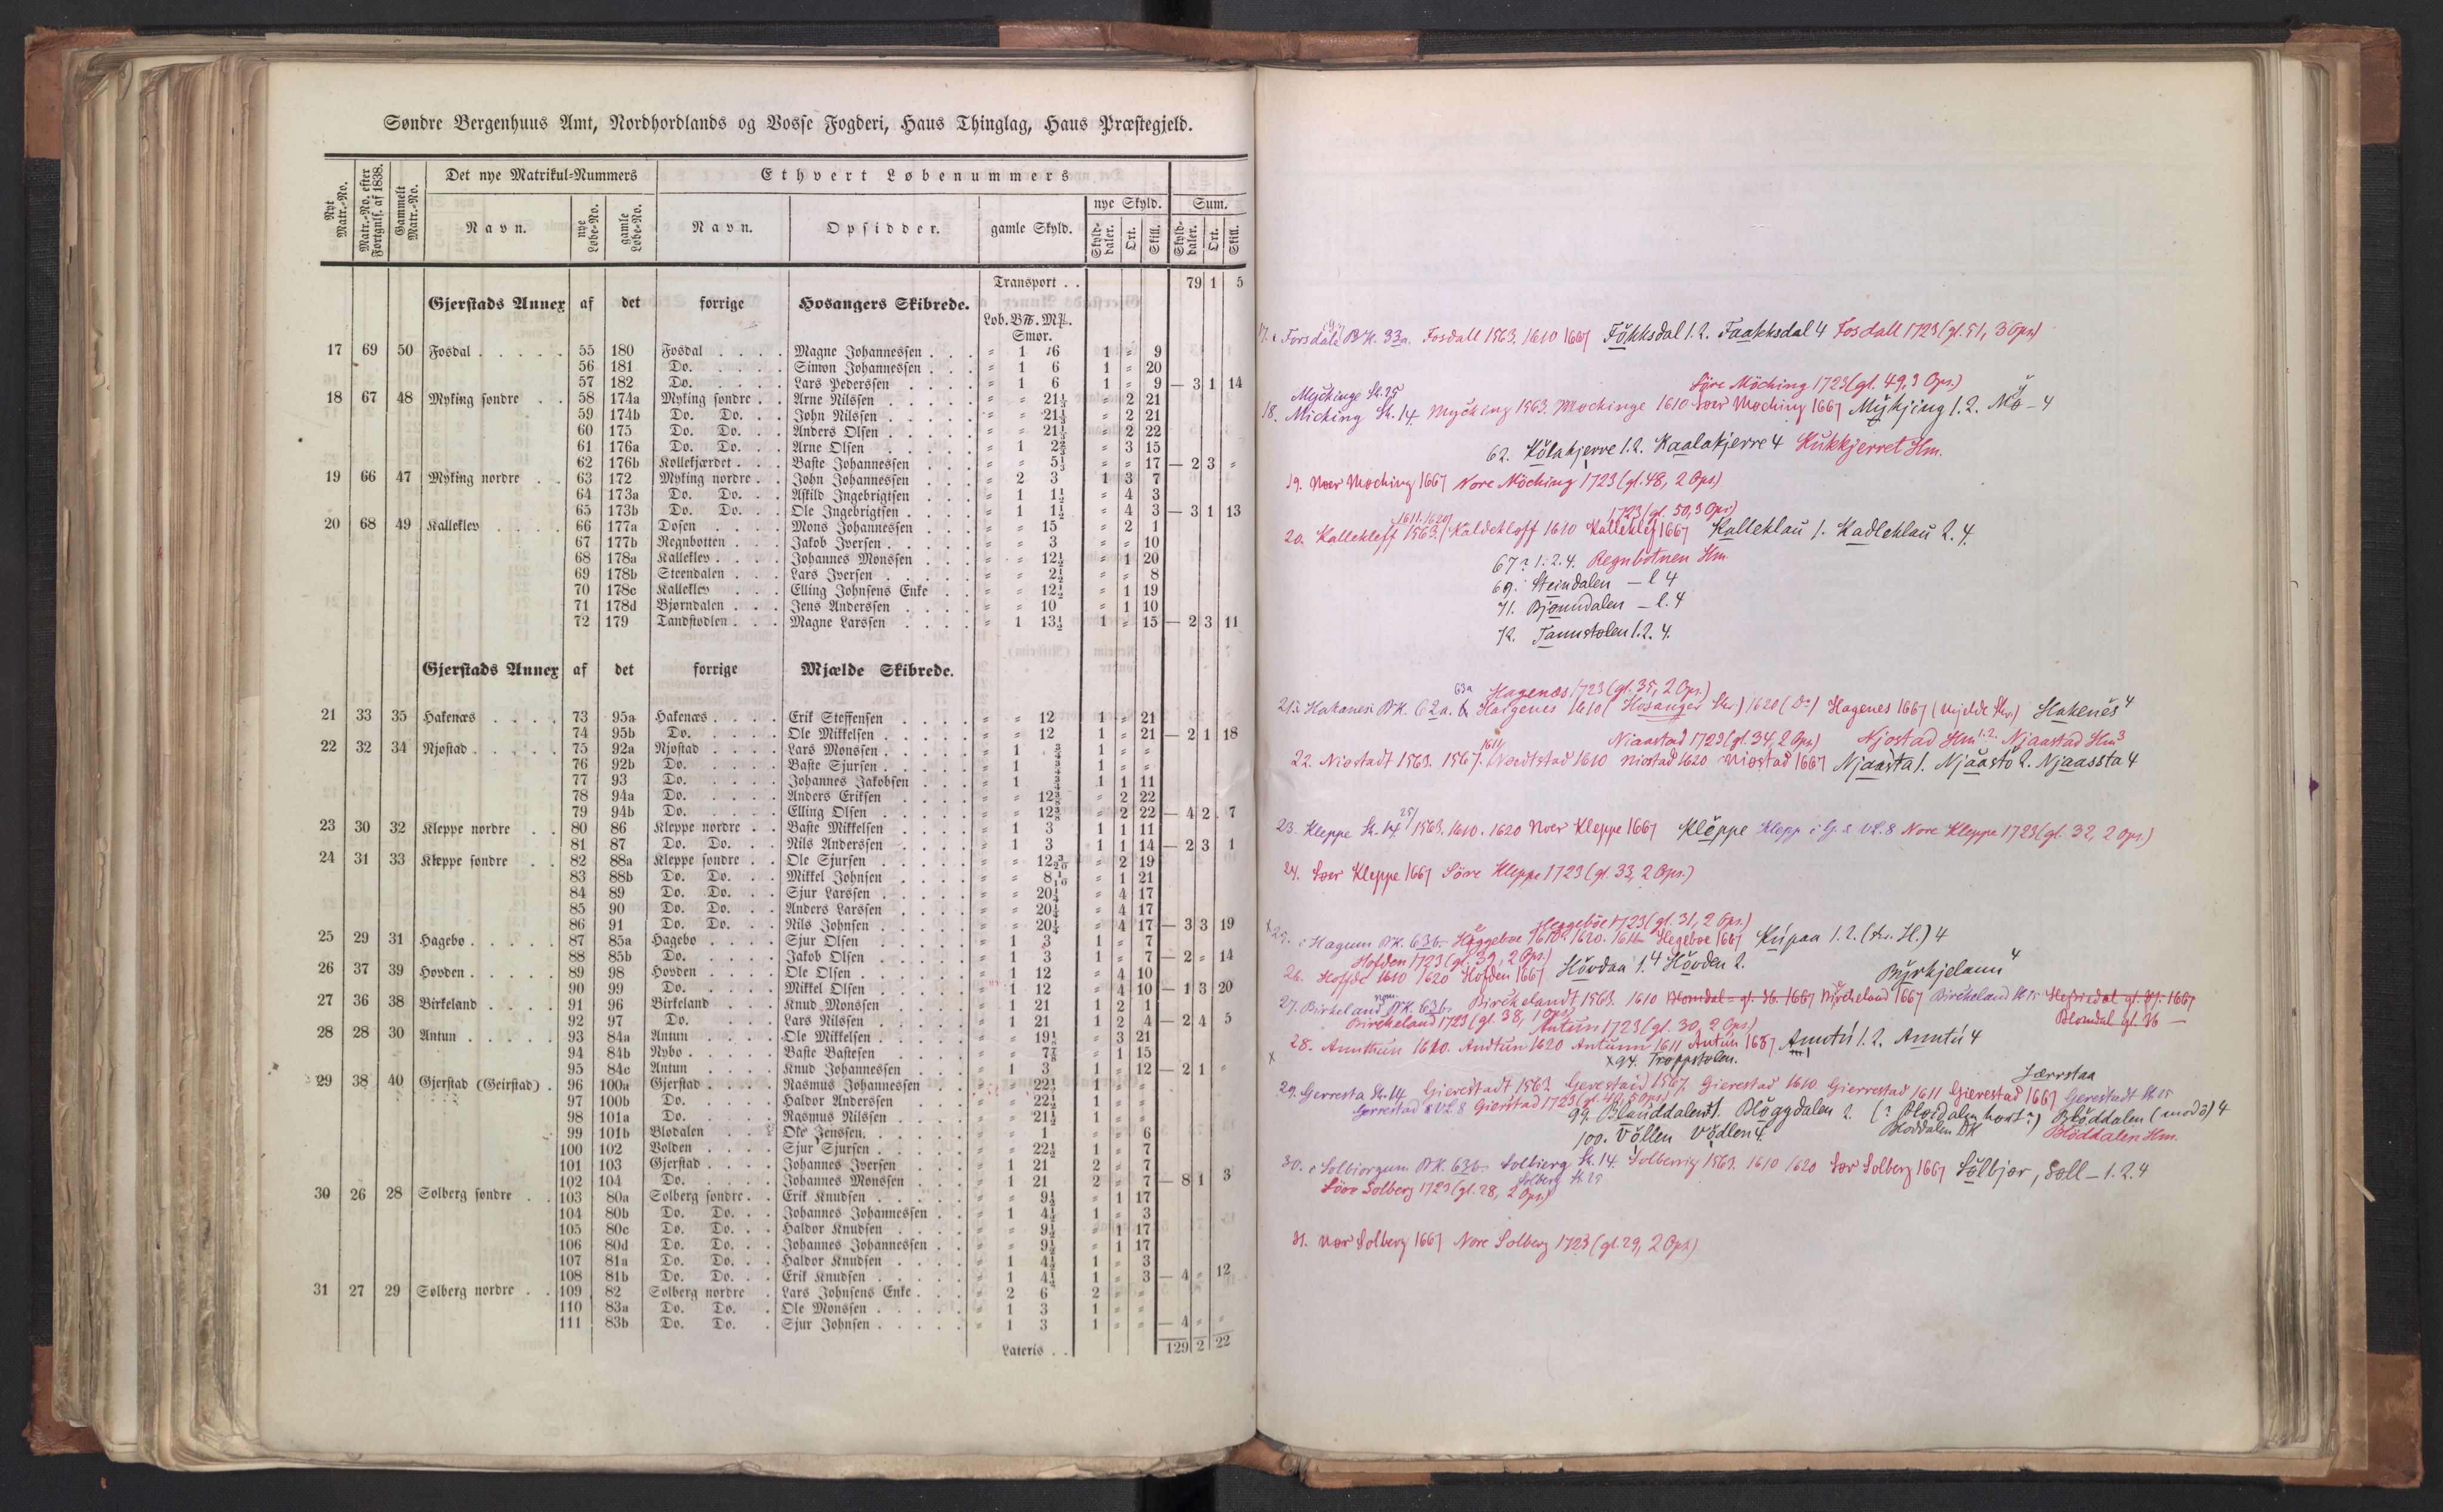 Søndre Bergenhuus Amt, Nordhordlands og Vosse Fogderi, Haus Thinglag, Haus Præstegjeld.
Nyt Matr.-No. Matr.-No. efter Fortgnlf. af 1838. Gammelt Matr.-No. Det nye Matrikul-Nummers Ethvert Løbenummers
Navn. nye Løbe-No. gamle Løbe-No. Navn. Opsidder. gamle Skyld. nye Skyld. Sum.
Skylddaler. Ort. Skill. Skylddaler. Ort. Skill.
Transport . . 79 1 5
Gjerstads Annex af det forrige Hosangers Skibrede.
Løb. B℔. M℔.
Smør.
17 69 50 Fosdal . . . . . 55 180 Fosdal . . . . Magne Johannessen . . . = 1 16 1 = 9
56 181 Do. . . . . Simon Johannessen . . . = 1 6 1 = 20
57 182 Do. . . . . Lars Pederssen . . . . = 1 6 1 = 9 — 3 1 14
18 67 48 Myking søndre . . 58 174a Myking søndre . . Arne Nilssen . . . . . = = 21⅓ = 2 21
59 174b Do. Do. . . John Nilssen . . . . . = = 21⅓ = 2 21
60 175 Do. Do. . . Anders Olsen . . . . . = = 21⅓ = 2 22
61 176a Do. Do. . . Arne Olsen . . . . . = 1 2⅔ = 3 15
62 176b Kollekjærdet . . . Baste Johannessen . . . = = 5⅓ = = 17 — 2 3 =
19 66 47 Myking nordre . . 63 172 Myking nordre . . John Johannessen . . . = 2 3 1 3 7
64 173a Do. Do. . . Askild Ingebrigtsen . . . = 1 1½ = 4 3
65 173b Do. Do. . . Ole Ingebrigtsen . . . . = 1 1½ = 4 3 — 3 1 13
20 68 49 Kalleklev . . . . 66 177a Dosen . . . . Mons Johannessen . . . = = 15 = 2 1
67 177b Regnbotten . . . Jakob Iversen . . . . . = = 3 = = 10
68 178a Kalleklev . . . . Johannes Monssen . . . = = 12½ = 1 20
69 178b Steendalen . . . Lars Iversen . . . . . = = 2½ = = 8
70 178c Kalleklev . . . Elling Johnsens Enke . . = = 12½ = 1 19
71 178d Bjørndalen . . . Jens Anderssen . . . . = = 10 = 1 10
72 179 Tandstødlen . . . Magne Larssen . . . . = 1 13½ 1 = 15 — 2 3 11
Gjerstads Annex af det forrige Mjælde Skibrede.
21 33 35 Hakenæs . . . . 73 95a Hakenæs . . . . Erik Steffensen . . . . = = 12 1 = 21
74 95b Do. . . . . Ole Mikkelsen . . . . . = = 12 1 = 21 — 2 1 18
22 32 34 Njøstad . . . . . 75 92a Njøstad . . . . Lars Monssen . . . . . = 1 ¾ 1 = =
76 92b Do. . . . . Baste Sjursen . . . . . = 1 ¾ 1 = =
77 93 Do. . . . . Johannes Jakobsen . . . = 1 ¾ 1 1 11
78 94a Do. . . . . Anders Eriksen . . . . = = 12⅜ = 2 22
79 94b Do. . . . . Elling Olsen . . . . . = = 12⅜ = 2 22 — 4 2 7
23 30 32 Kleppe nordre . . 80 86 Kleppe nordre . . Baste Mikkelsen . . . . = 1 3 1 1 11
81 87 Do. Do. . . Nils Anderssen . . . . = 1 3 1 1 14 — 2 3 1
24 31 33 Kleppe søndre . . 82 88a Kleppe søndre . . Ole Sjursen . . . . . = = 12 3/20 = 2 19
83 88b Do. Do. . . Mikkel Johnsen . . . . = = 8 1/10 = 1 21
84 89 Do. Do. . . Sjur Larssen . . . . . = = 20¼ = 4 17
85 90 Do. Do. . . Anders Larssen . . . . = = 20¼ = 4 17
86 91 Do. Do. . . Nils Johnsen . . . . . = = 20¼ = 4 17 — 3 3 19
25 29 31 Hagebø . . . . . 87 85a Hagebø . . . . Sjur Olsen . . . . . = 1 3 1 = 7
88 85b Do. . . . . Jakob Olsen . . . . . = 1 3 1 = 7 — 2 = 14
26 37 39 Hovden . . . . . 89 98 Hovden . . . . Ole Olsen . . . . . = 1 12 = 4 10
90 99 Do. . . . . Mikkel Olsen . . . . . = 1 12 = 4 10 — 1 3 20
27 36 38 Birkeland . . . . 91 96 Birkeland . . . Knud Monssen . . . . = 1 21 1 2 1
92 97 Do. . . . Lars Nilssen . . . . . = 1 21 1 2 4 — 2 4 5
28 28 30 Antun . . . . . 93 84a Antun . . . . Ole Mikkelsen . . . . . = = 19⅛ = 3 21
94 84b Nybø . . . . . Baste Bastesen . . . . = = 7⅞ = 1 15
95 84c Antun . . . . Knud Johannessen . . . = 1 3 1 = 12 — 2 1 =
29 38 40 Gjerstad (Geirstad) . 96 100a Gjerstad . . . . Rasmus Johannessen . . = = 22½ 1 = =
97 100b Do. . . . . Haldor Anderssen . . . = = 22½ 1 = =
98 101a Do. . . . . Rasmus Nilssen . . . . = = 21½ 1 = =
99 101b Blodalen . . . Oke Jenssen. . . . . . = = 1 = = 6
100 102 Volden . . . . Sjur Sjursen . . . . . = = 22½ 1 = 7
101 103 Gjerstad . . . . Johannes Iversen . . . = 1 21 2 = 7
102 104 Do. . . . . Johannes Monssen . . . = 1 21 2 = 7 — 8 1 3
30 26 28 Solberg søndre . . 103 80a Solberg søndre . . Erik Knudsen . . . . . = = 9½ = 1 17
104 80b Do. Do. . . Johannes Johannessen . . = 1 4½ 1 = 3
105 80c Do. Do. . . Haldor Knudsen . . . . = = 9½ = 1 17
106 80d Do. Do. . . Johannes Johannessen . . = = 9½ = 1 17
107 81a Do. Do. . . Haldor Knudsen . . . . = 1 4½ 1 = 3
108 81b Do. Do. . . Erik Knudsen . . . . . = 1 4½ 1 = 3 — 4 = 12
31 27 29 Solberg nordre . . 109 82 Solberg nordre . Lars Johnsens Enke . . . = 2 6 2 = =
110 83a Do. Do. . Ole Monssen . . . . . = 1 3 1 = =
111 83b Do. Do. . Sjur Johnsen . . . . . = 1 3 1 = = — 4 = =
Lateris . . 129 2 22
17. i Forsdale BK. 33a. Fosdall 1563. 1610 1667 Fökksdal 1.2. Faakksdal 4 Fosdall 1723 (gl. 51, 3 Ops)
Mychinge St. 25 Söre Möching 1723 (gl. 49, 3 Ops.)
18. Miching St. 14. Myching 1563. Mochinge 1610 Soer Moching 1667 Mykjing 1.2. Mö – 4
62. Kölakjerre 1.2. Kaalakjerre 4 Kukkjerret Hm.
19. Noer Moching 1667 Nore Möching 1723 (gl. 48, 2 Ops)
1611. 1620 1723 (gl. 50, 3 Ops.)
20. Kallekleff 1563. Kaldekloff 1610 Kalleklef 1667 Kalleklau 1. Kadleklau 2. 4.
67? 1. 2. 4. Regnbotnen Hm.
69. Steindalen – 2 4
71. Bjönndalen – 2. 4
72. Tannstolen 1. 2. 4.
63a Hagenæs 1723 (gl. 35, 2 Ops.)
21. i Hakanesi BK. 62a. Hargenes 1610 (Hosanger Skr) 1620 (Do) Hagenes 1667 (Mjelde Skr.) Hakenes 4
Niaastad 1723 (gl. 34, 2 Ops) Njostad Hm 1.2. Njaastad Hm 3
22. Niostadt 1563. 1567. 1611 Noedtstad 1610 Niostad 1620 Niostad 1667 Njaasta 1. Njaastö 2. Njaassta 4
23. Kleppe St. 14 25 1563. 1610. 1620 Noer Kleppe 1667 Kleppe Klepp i G. s VL. 8 Nore Kleppe 1723 (gl. 32, 2 Ops.)
24. Soer Kleppe 1667 Söre Kleppe 1723 (gl. 33, 2 Ops.)
Heggeböe 1723 (gl. 31, 2 Ops.)
25. i Hagum BK. 63b. Heggeboe 1610. 1620. 1611 Hegeboe 1667 Kúpaa 1.2. (skr. H.) 4
Hofden 1723 (gl. 39, 2 Ops.)
26. Hoffde 1610 1620 Hofden 1667 Hövdaa 1. 4 Hövden 2.
Byrkjelann 4
27. Birkeland BK. 63b. Birckelandt 1563. 1610 Blomdal gl. 36. 1667 Birckeland 1667 Birckeland St. 25 1667
Birckeland 1723 (gl. 38, 1 Ops) Blomdal gl. 36 —
Antun 1723 (gl. 30, 2 Ops.)
28. Amthun 1610. Andtun 1620 Antunn 1611 Antun 1667 Amtú 1. 2. Anntú 4
x 94. Troppstolen.
Jærrstaa
29. Gerresta St. 14 Gierestadt 1563 Gerestaid 1567. Gierestad 1610. Gierrestad 1611 Gierestad 1667 Gerestadt St. 25
Gerrestad s VL 8 Gierstad 1723 (gl. 40, 5 Ops)
99. Blauddalen 1. Blöggdalen 2. Blöddalen (mod ö) 4
100. Völlen Vödlen 4. Bloddalen DK Blöddalen Hm.
30. i Solbiorgum BK. 63b. Solbierg St. 14. Solberrig 1563. 1610 1620 Soer Solberg 1667 Sölbjor, Soll – 1. 2. 4
Solberg St. 25
Söre Solberg 1723 (gl. 28, 2 Ops)
31. Nor Solberg 1667 Nore Solberg 1723 (gl. 29, 2 Ops)